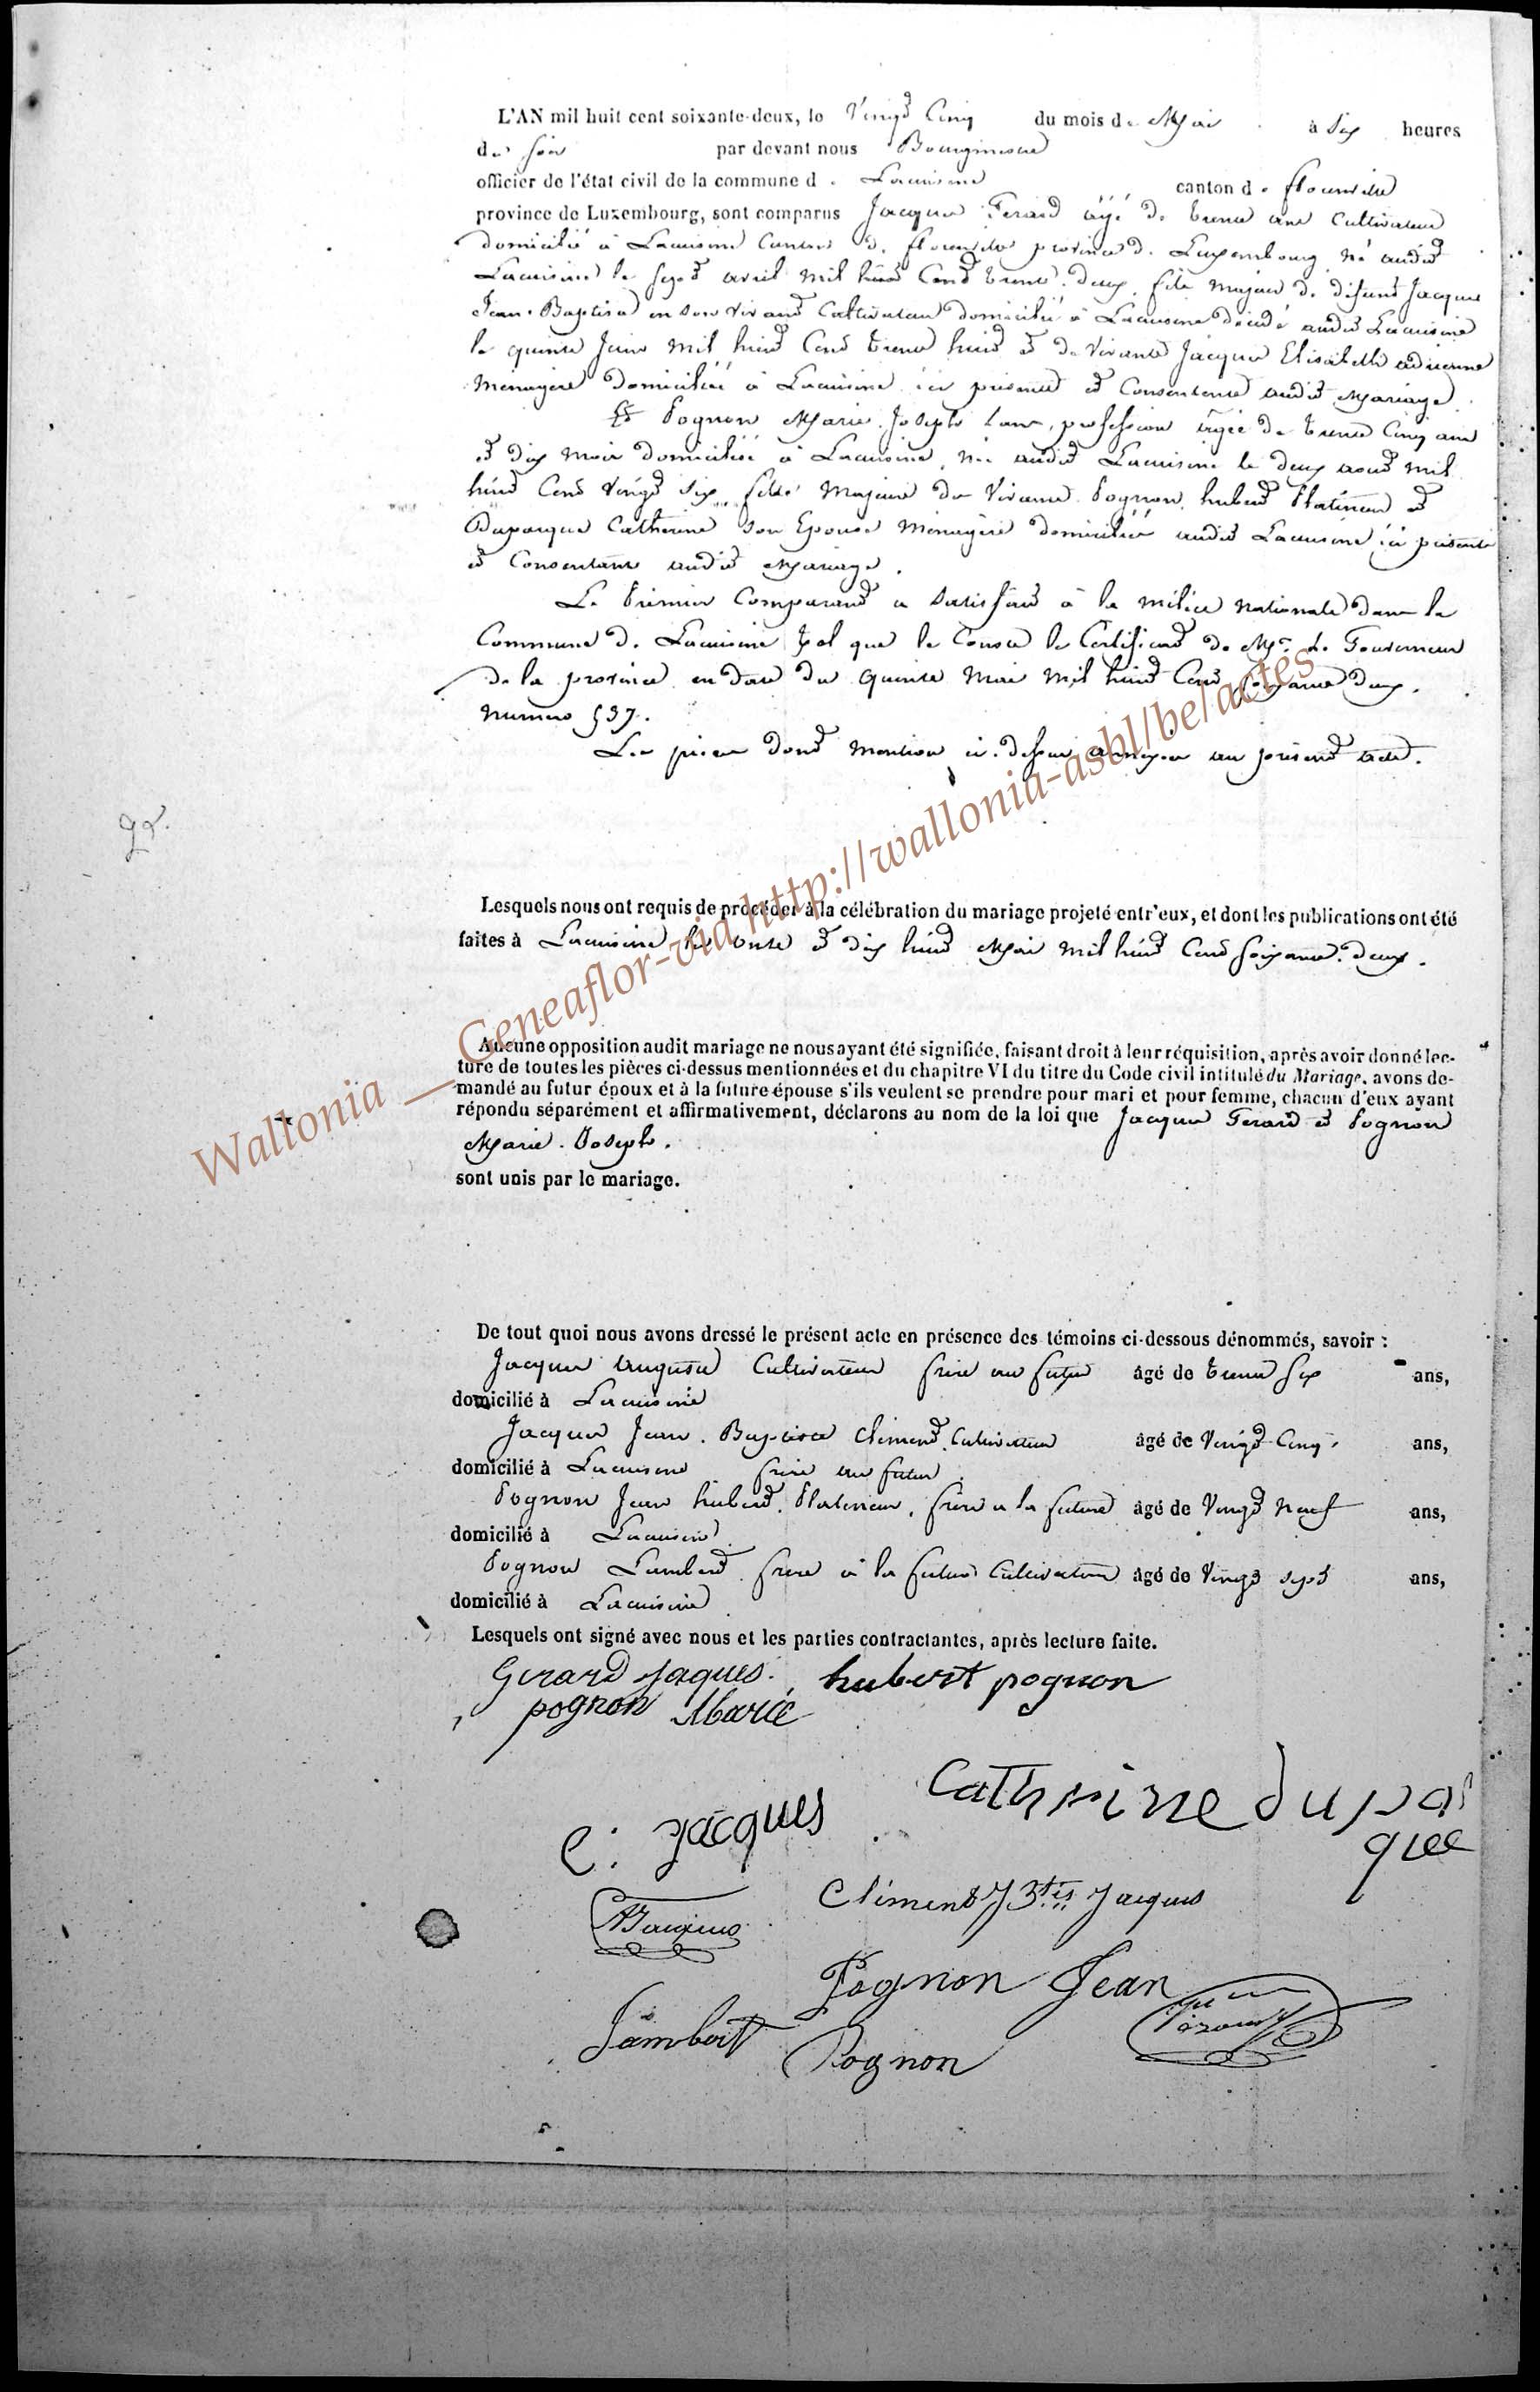 L'AN mil huit cent soixante-deux, le Vingt Cinq du mois de Mai à Six heures
du soir par devant nous Bourgmestre
officier de l'état civil de la commune d. Lacuisine canton d. florenville
province de Luxembourg, sont comparus Jacques Gerard âgé de trente ans Cultivateur
domicilié à Lacuisine Canton d. florenville province d. Luxembourg né audit
Lacuisine le sept avril mil huit Cent trente-deux, fils majeur d. défunt Jacques
Jean-Baptiste en son vivant Cultivateur domicilié à Lacuisine décédé audit Lacuisine
le quinze Juin mil huit Cent trente huit et de vivante Jacques Elisabeth adrienne
Menagère domiciliée à Lacuisine ici présente et Consentente audit Mariage.
Et Pognon Marie Joseph sans profession âgée de trente Cinq ans
et dix mois domiciliée à Lacuisine, née audit Lacuisine le deux aout mil
huit Cent vingt six fille Majeure de Vivants Pognon hubert Platineur et
Duparque Catherine son Epouse Menagère domiciliés audit Lacuisine ici présents
et Consentants audit Mariage.
Le Premier Comparant a Satisfait à la milice nationale dans la
Commune d. Lacuisine tel que le Conste le Certificat de Mr. le Gouverneur
de la province en date du quinze Mai mil huit Cent soixante deux,
numero 537.
Les pièces dont mention ci-dessus annexées au présent acte.
Lesquels nous ont requis de procéder à la célébration du mariage projeté entr'eux, et dont les publications ont été
faites à Lacuisine les onze et dix huit Mai mil huit Cent soixante-deux.
Aucune opposition audit mariage ne nous ayant été signifiée, faisant droit à leur réquisition, après avoir donné lec-
ture de toutes les pièces ci-dessus mentionnées et du chapitre VI du titre du Code civil intitulé du Mariage, avons de-
mandé au futur époux et à la future épouse s'ils veulent se prendre pour mari et pour femme, chacun d'eux ayant
répondu séparément et affirmativement, déclarons au nom de la loi que Jacques Gerard et Pognon
Marie-Joseph.
sont unis par le mariage.
De tout quoi nous avons dressé le présent acte en présence des témoins ci-dessous dénommés, savoir :
Jacques Auguste Cultivateur frère au futur âgé de trente six ans,
domicilié à Lacuisine
Jacques Jean-Baptiste Clément Cultivateur âgé de Vingt-Cinq ans,
domicilié à Lacuisine frère au futur.
Pognon Jean hubert Platineur, frère à la future âgé de Vingt Neuf ans,
domicilié à Lacuisine
Pognon Lambert frère à la future Cultivateur âgé de Vingt sept ans,
domicilié à Lacuisine
Lesquels ont signé avec nous et les parties contractantes, après lecture faite.
Gerard Jaques. hubert pognon
pognon Marie
Catherine dupar
quee
e: Jacques
Clément J Btis Jacques
AJacques
Pognon Jean
Lambert Pognon
Wallonia __ Geneaflor-via http://wallonia-asbl/be/actes